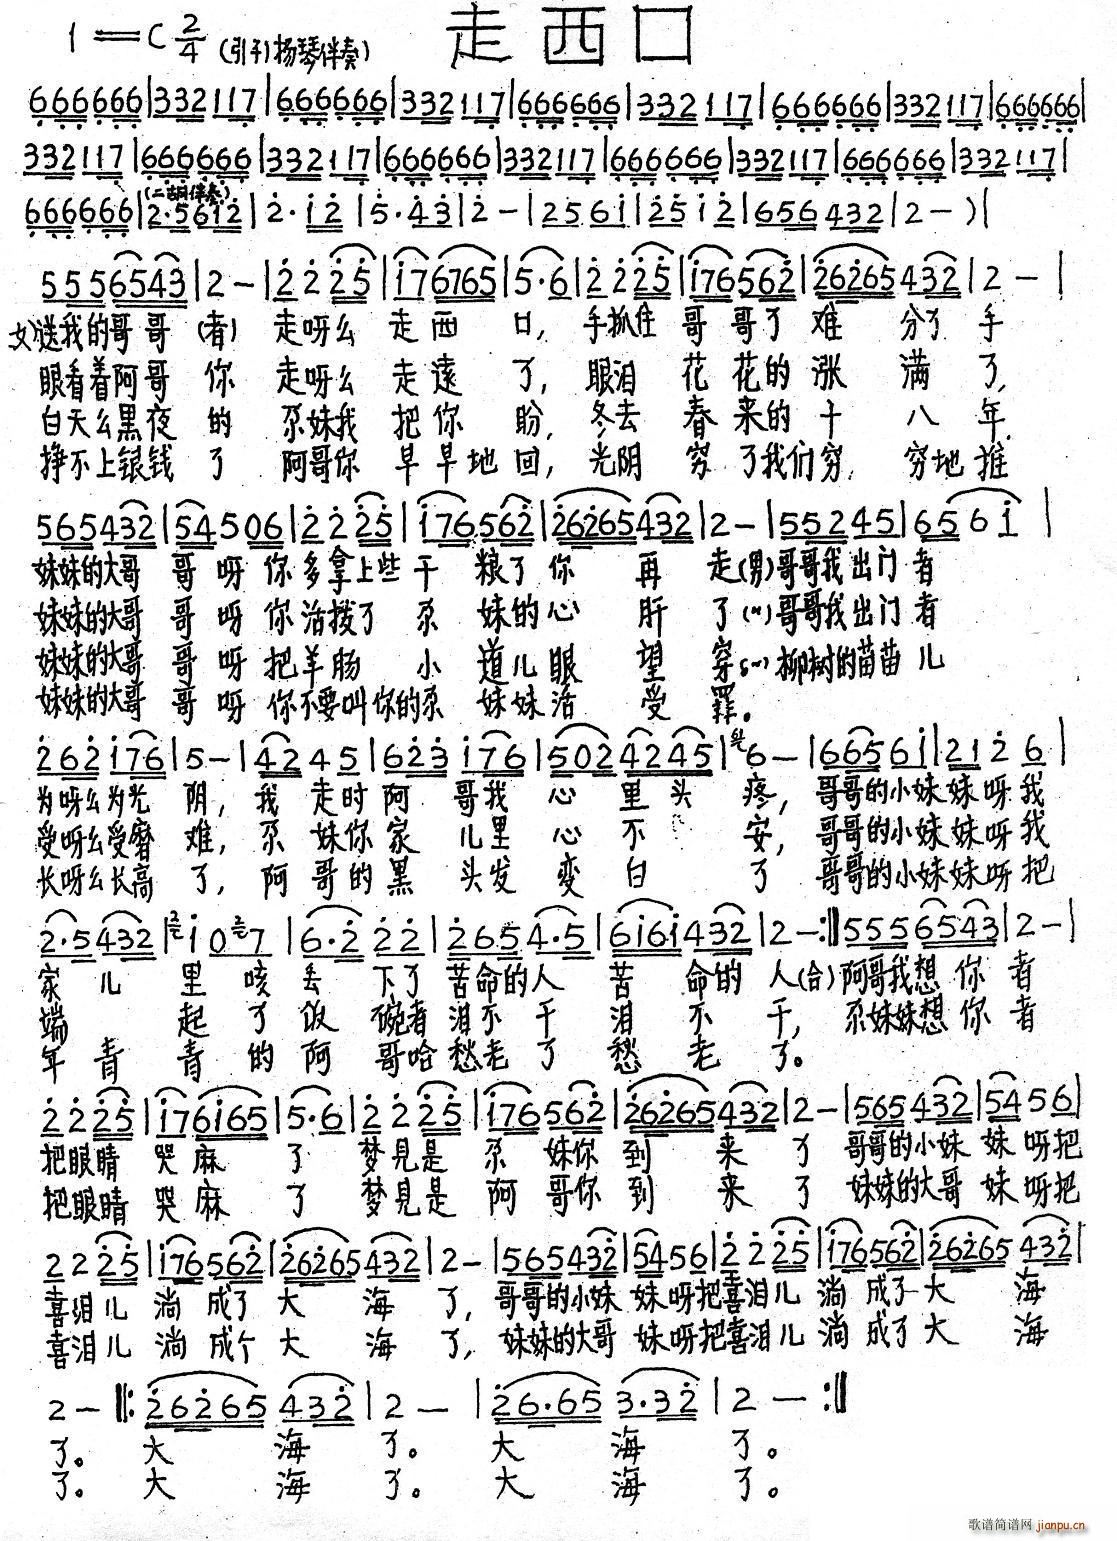 走西口
1=C 2/4 (引子)杨琴伴奏)
666666|332117|666666|332117|666666|332117|666666|332117|666666|
332117|666666|332117|666666|332117|666666|332117|666666|332117|
(二胡伴奏)
666666|2·5612|2·12|5·43|2-|2561|2512|656432|2-)|
5556543|2-|2225|176765|5·6|2225|176562|26265432|2-|
女)送我的哥哥(者)走呀么走西口,手抓住哥哥了难分了手
眼看着阿哥你走呀么走遠了,眼泪花花的涨满了,
白天么黑夜的尕妹我把你盼,冬去春来的十八年,
挣不上银钱了阿哥你早早地回,光阴穷了我们穷,穷地推
565432|54506|2225|176562|26265432|2-|55245|6561|
妹妹的大哥哥呀你多拿上些干粮了你再走(男)哥哥我出门者
妹妹的大哥哥呀你活拨了尕妹的心肝了(〃)哥哥我出门者
妹妹的大哥哥呀把羊肠小道儿眼望穿(〃)柳树的苗苗儿
妹妹的大哥哥呀你不要叫你的尕妹妹活受罪。
262176|5-|4245|623176|5024245|6-|66561|2126|
为呀么为光阴,我走时阿哥我心里头疼,哥哥的小妹妹呀我
受呀么受磨难,尕妹你家儿里心不安,哥哥的小妹妹呀我
长呀么长高了,阿哥的黑头发变白了哥哥的小妹妹呀把
2·5432|107|6·222|2654·5|6161432|2-:‖5556543|2-|
家儿里咳丢下了苦命的人苦命的人(合)阿哥我想你者
端起了饭碗者泪不干泪不干,尕妹妹想你者
年青青的阿哥哈愁老了愁老了。
2225|176165|5·6|2225|176562|26265432|2-|565432|5456|
把眼睛哭麻了梦見是尕妹你到来了哥哥的小妹妹呀把
把眼睛哭麻了梦見是阿哥你到来了妹妹的大哥妹呀把
2225|176562|26265432|2-|565432|5456|2225|176562|26265432|
喜泪儿淌成了大海了,哥哥的小妹妹呀把喜泪儿淌成了大海
喜泪儿淌成个大海了,妹妹的大哥妹呀把喜泪儿淌成了大海
2-‖:26265432|2-|26·653·32|2-:‖
了。大海了。大海了。
了。大海了。大海了。
歌谱简谱网 jianpu.cn